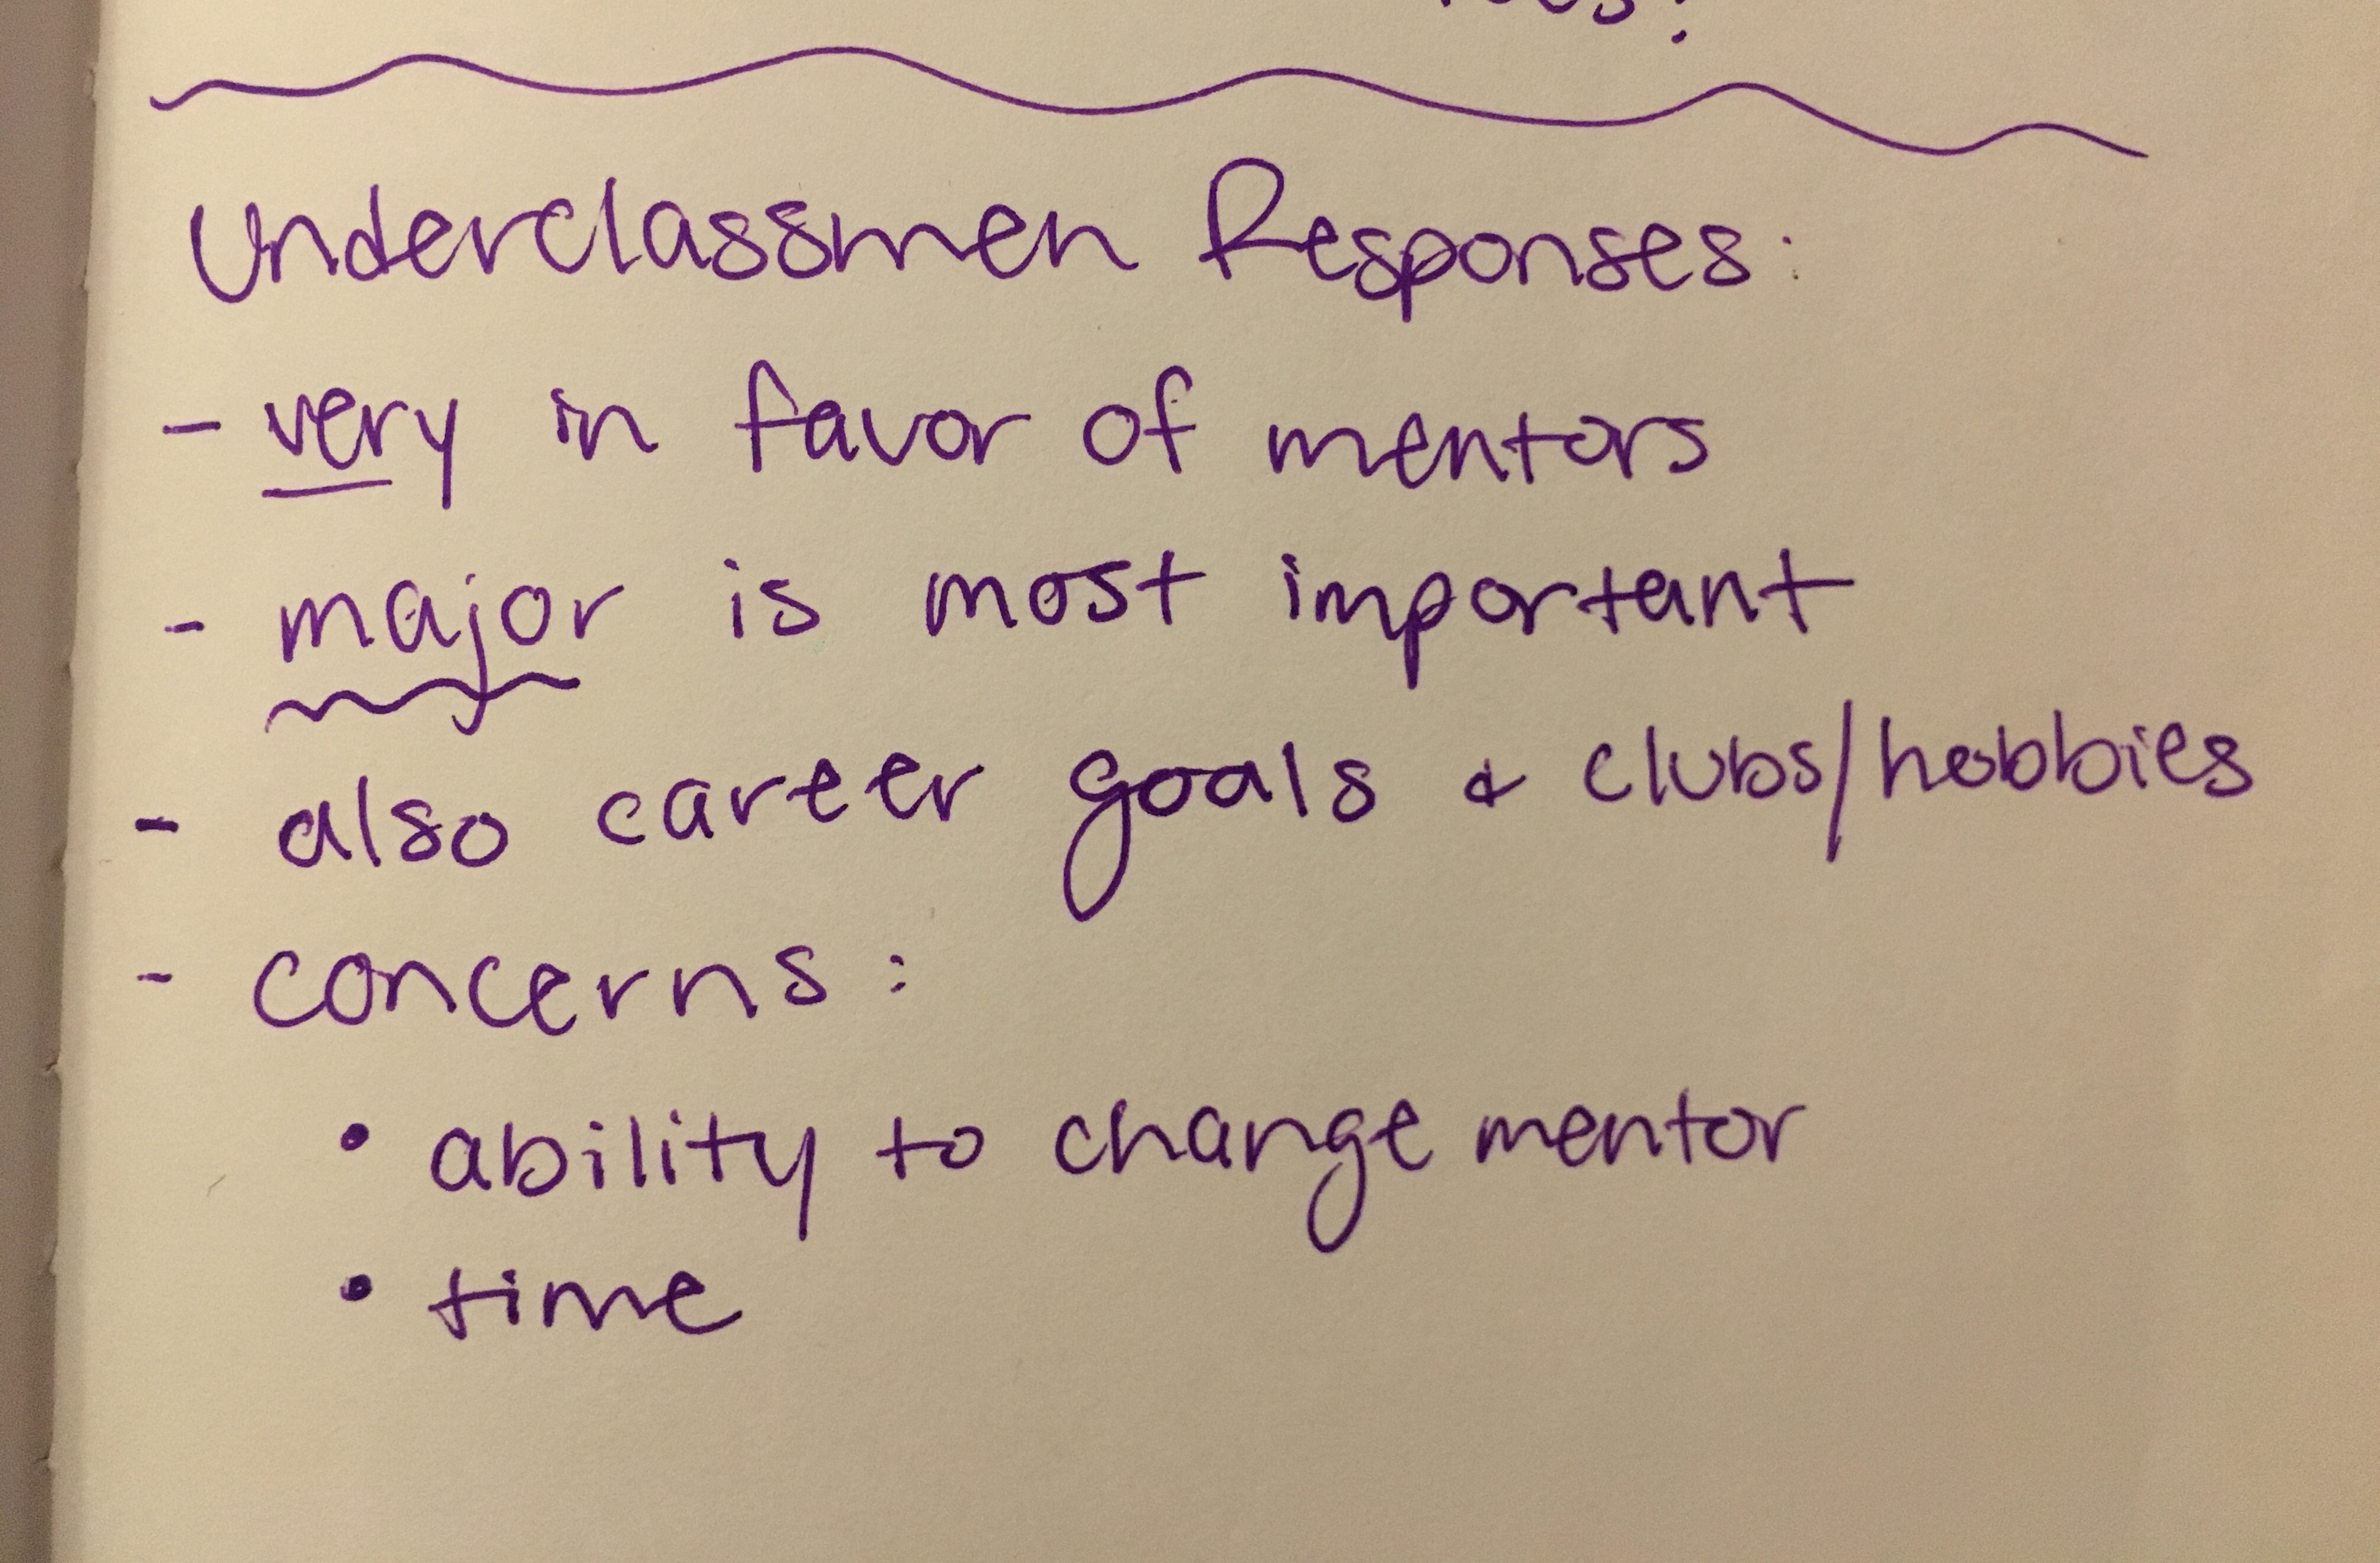 Underclassmen Responses:
- very in favor of mentors
- major is most important
- also career goals & clubs/hobbies
- concerns:
• ability to change mentor
• time